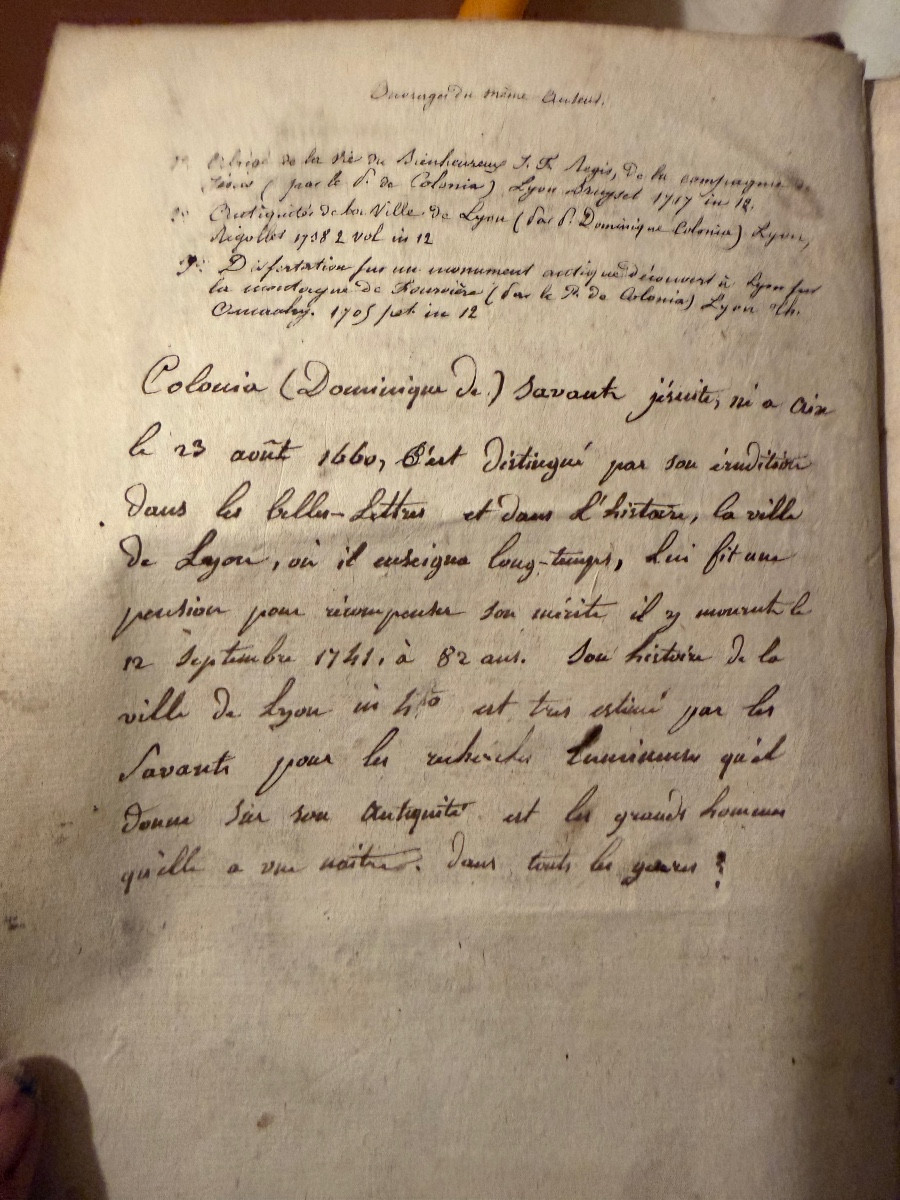 Ouvrages du même Auteur.
1º Abrégé de la Vie du Bienheureux J. F. Regis, de la compagnie de
Jésus (par le P. de Colonia) Lyon Bruyset 1717 in 12.
2º Antiquités de la Ville de Lyon (Par P. Dominique Colonia) Lyon,
Rigollet 1738 2 vol in 12
3º Dissertation sur un monument antique découvert à Lyon sur
la montagne de Fourvière (Par le P. de Colonia) Lyon Th.
Amaulry. 1705 pet. in 12
Colonia (Dominique de) Savant jésuite, né a Aix
le 23 août 1660, S'est distingué par son érudition
dans les belles-Lettres et dans L'histoire, la ville
de Lyon, où il enseigna long-temps, Lui fit une
pension pour récompenser son mérite il y mourut le
12 Septembre 1741, à 82 ans. Son histoire de la
ville de Lyon in 4to est tres estimé par les
Savants pour les recherches Lumineuses qu'il
donne sur son Antiquité est les grands hommes
qu'elle a vue naître. dans touts les genres